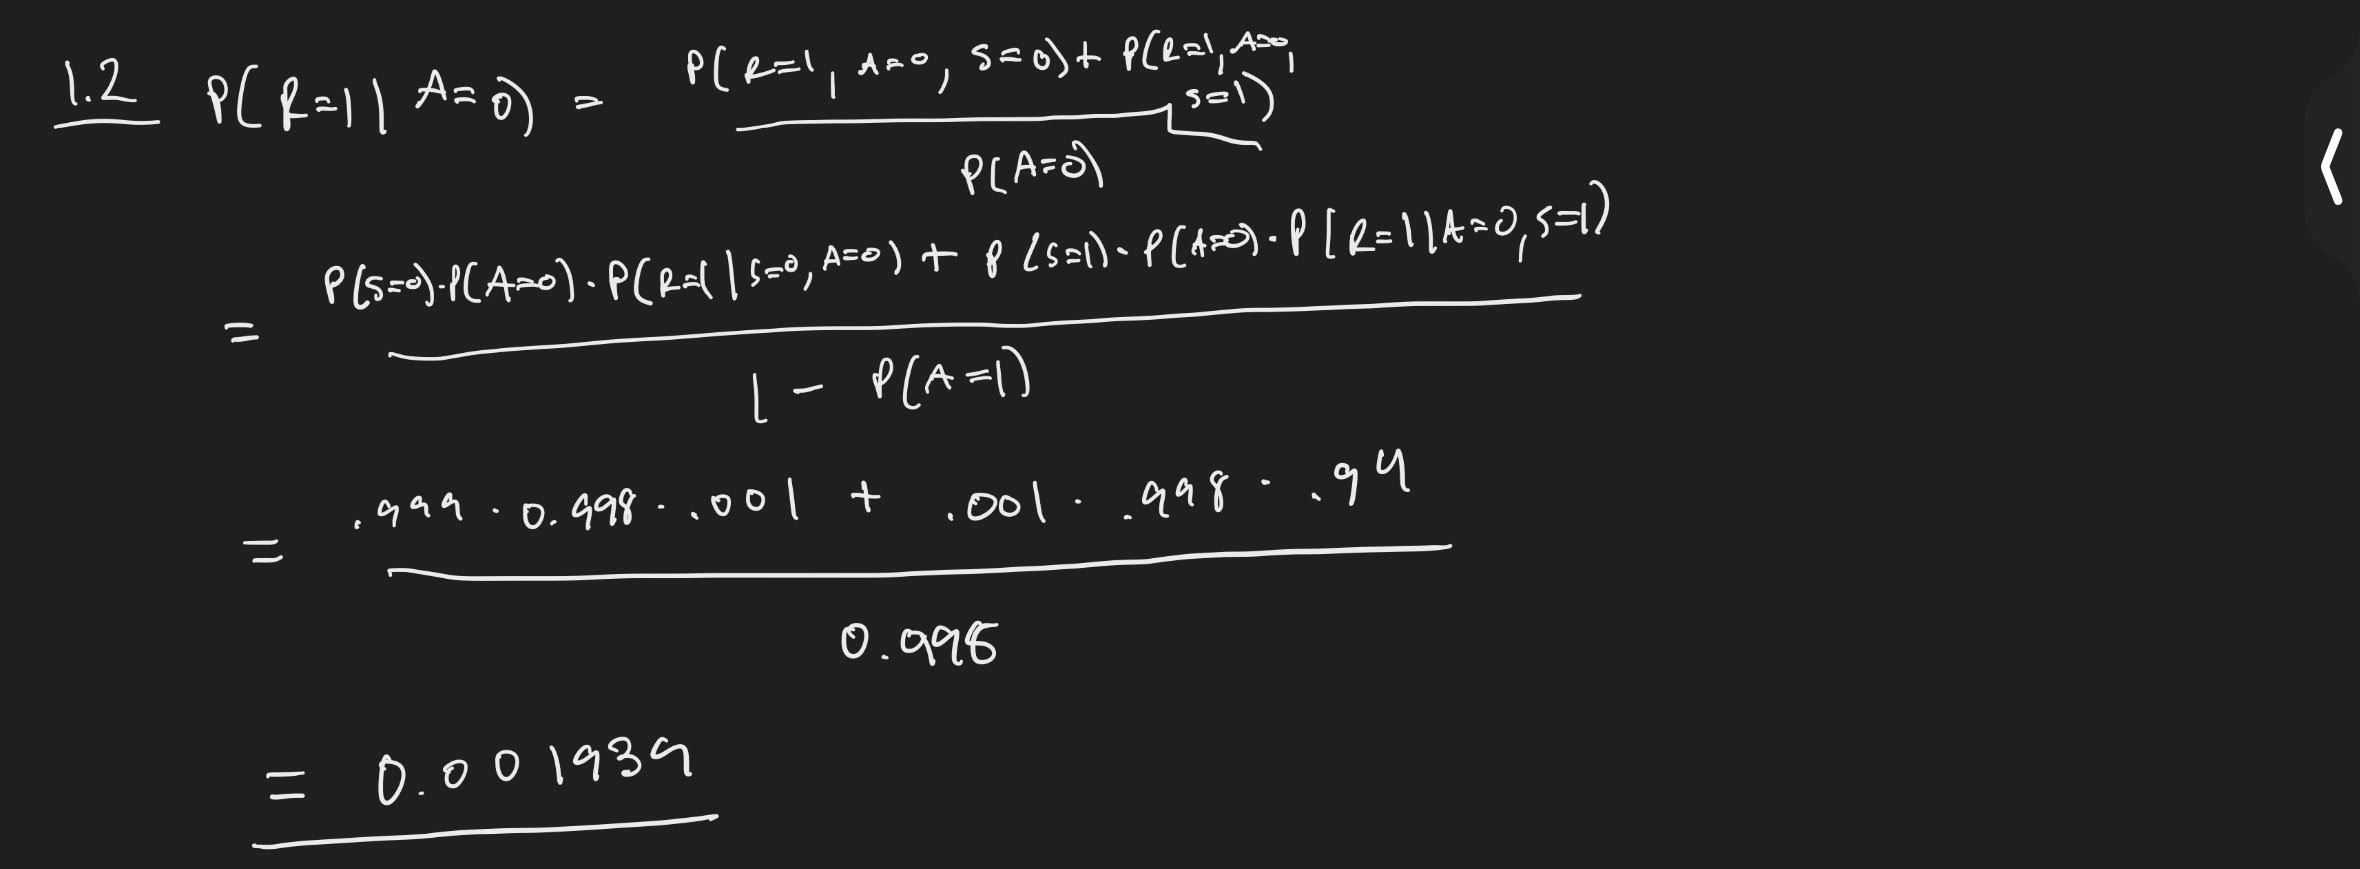 1.2 P(R=1 | A=0) = P(R=1, A=0, S=0) + P(R=1, A=0,
S=1)
P(A=0)
P(S=0)·P(A=0)·P(R=1 | S=0, A=0) + P(S=1)·P(A=0)·P(R=1 | A=0, S=1)
=
1 - P(A=1)
= .999 · 0.998 · .001 + .001 · .998 · .94
0.998
= 0.001939